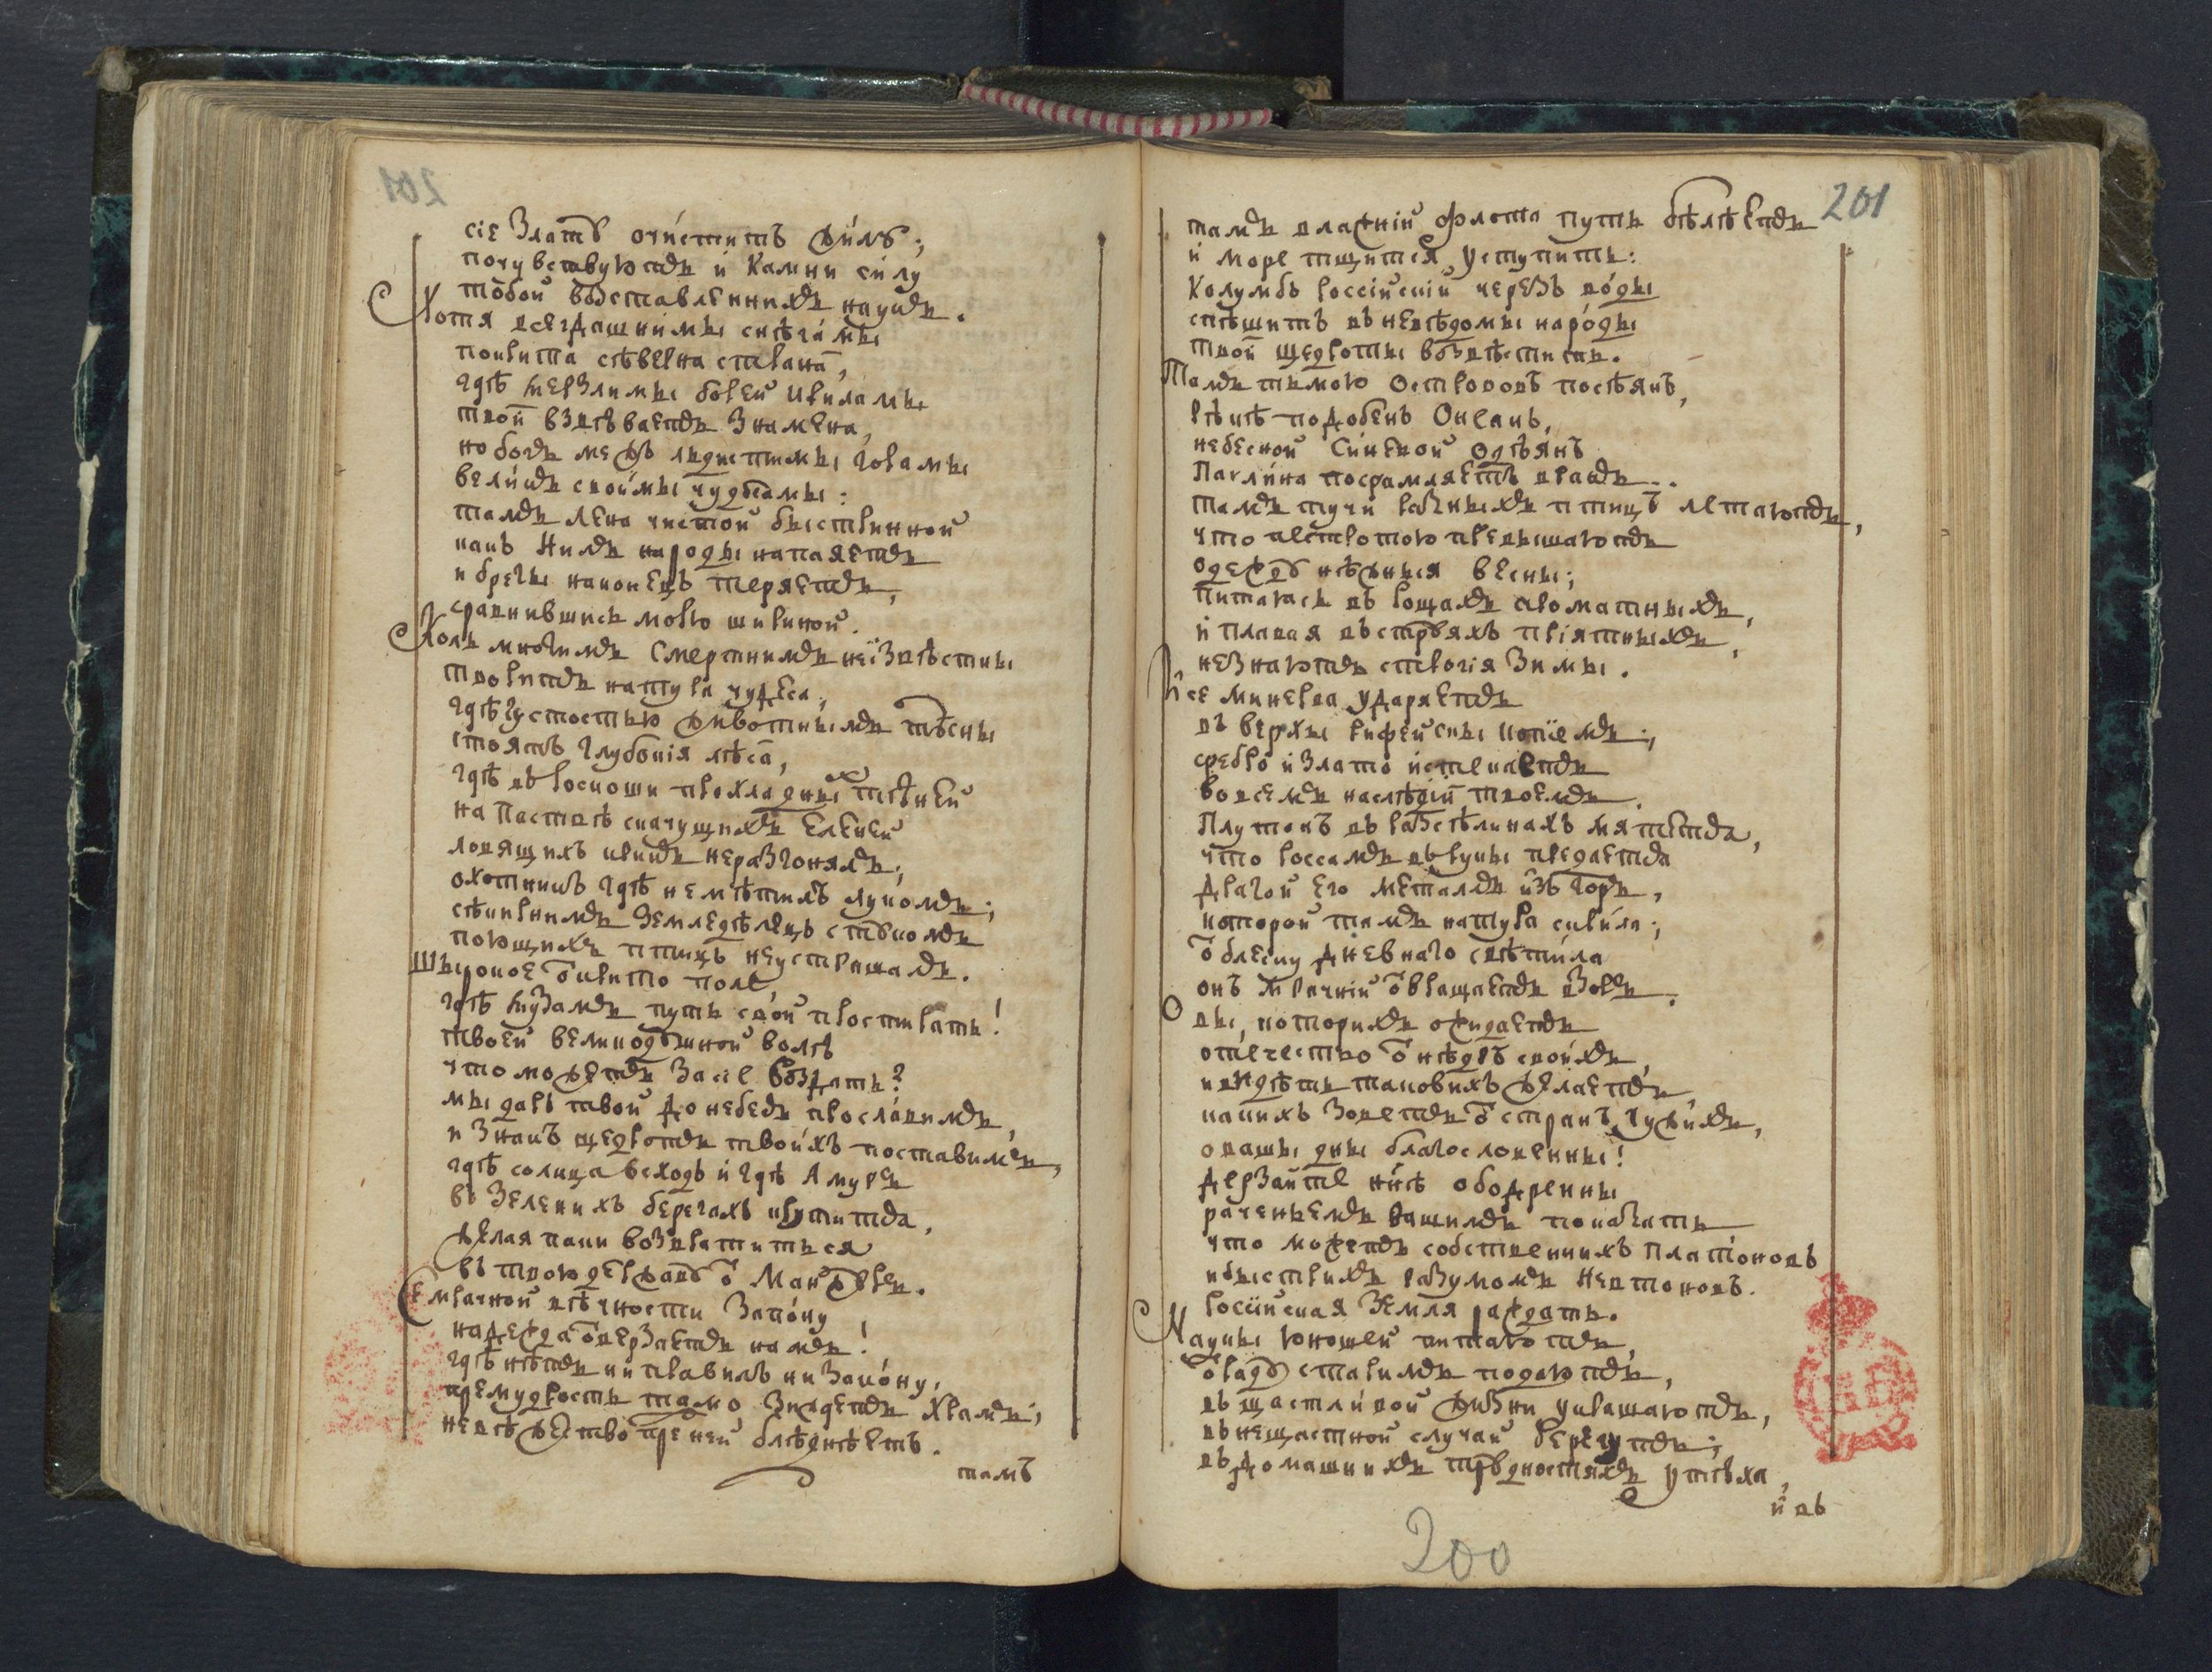 201
сіе Злато очиститъ жилъ;
почувствуютъ и Камни силу
тобой возставленнихъ наукъ.
Хотя всегдашними снѣгами
покрита сѣверна страна,
гдѣ мерзлими борей крилами
твои взвѣваетъ Знамена,
но богъ межъ лдистими горами
великъ своими чудесами:
тамъ лена чистой быстриной
какъ Нилъ народы напаяетъ
и бреги наконецъ теряетъ,
сравнившись морю шириной.
Коль многимъ Смертнимъ неизвѣстны
творитъ натура чудеса,
гдѣ густостью животнымъ тѣсны
стоятъ глубокія лѣса,
гдѣ въ роскоши прохладныхъ тѣней
на Паствѣ скачущихъ Еленей
ловящихъ крикъ неразгонялъ;
охотникъ гдѣ немѣтилъ лукомъ;
сѣкирнимъ Земледѣлецъ стукомъ
поющихъ птицъ неустрашалъ.
Широкое ѿкрито поле,
гдѣ музамъ путь свой простирать!
твоей великодушной волѣ
что можетъ За сіе воздать?
мы даръ твой до небесъ прославимъ,
и Знакъ щедротъ твоихъ поставимъ,
гдѣ солнца всходъ и гдѣ Амуръ
въ Зеленихъ берегахъ крутитца,
желая паки возвратиться
въ твою державу ѿ Манжуръ.
Се мрачной вѣчности Запону
надежда ѿверзаетъ намъ!
гдѣ нѣтъ ни правилъ ни Закону,
премудрость тамо Зиждетъ храмъ;
невѣжество пред ней блѣднѣетъ.
тамъ
201
тамъ влажній флота путь бѣлѣетъ
и море тщится уступить:
Колумбъ россійскій черезъ воды
спѣшитъ въ невѣдомы народы
твои щедроты возвѣстить.
Тамъ тьмою острововъ посѣянъ,
рѣкѣ подобенъ Океанъ,
небесной Синевой Одѣянъ
Павлина посрамляетъ вранъ.
тамъ тучи разныхъ птицъ летаютъ,
что пестротою превышаютъ
одежду нѣжныя весны;
Питаясь въ рощахъ ароматныхъ,
и плавая въ струяхъ пріятныхъ,
незнаютъ строгія Зимы.
И се минерва ударяетъ
въ верхи рифейски копіемъ;
сребро и Злато истекаетъ
во всемъ наслѣдіи твоемъ.
Плутонъ въ разсѣлинахъ мятется,
что россамъ въ руки предается
драгой его металлъ изъ горъ,
которой тамъ натура скрила;
ѿ блеску дневнаго свѣтила
онъ мрачній ѿвращаетъ взоръ.
О вы, которихъ ожидаетъ
отечество ѿ нѣдръ своихъ,
и видѣть таковихъ желаетъ,
какихъ Зоветъ ѿ странъ чужихъ,
о ваши дни благословенны!
дерзайте нинѣ ободренны
раченьемъ вашимъ показать
что можетъ собственнихъ Платоновъ
и быстрихъ разумомъ Невтоновъ
россійская Земля раждать.
Науки юношей питаютъ,
ѿраду старимъ подаютъ,
въ щастливой жизни украшаютъ,
въ нещастной случай берегутъ;
въ домашнихъ трудностяхъ утѣха,
и въ
200